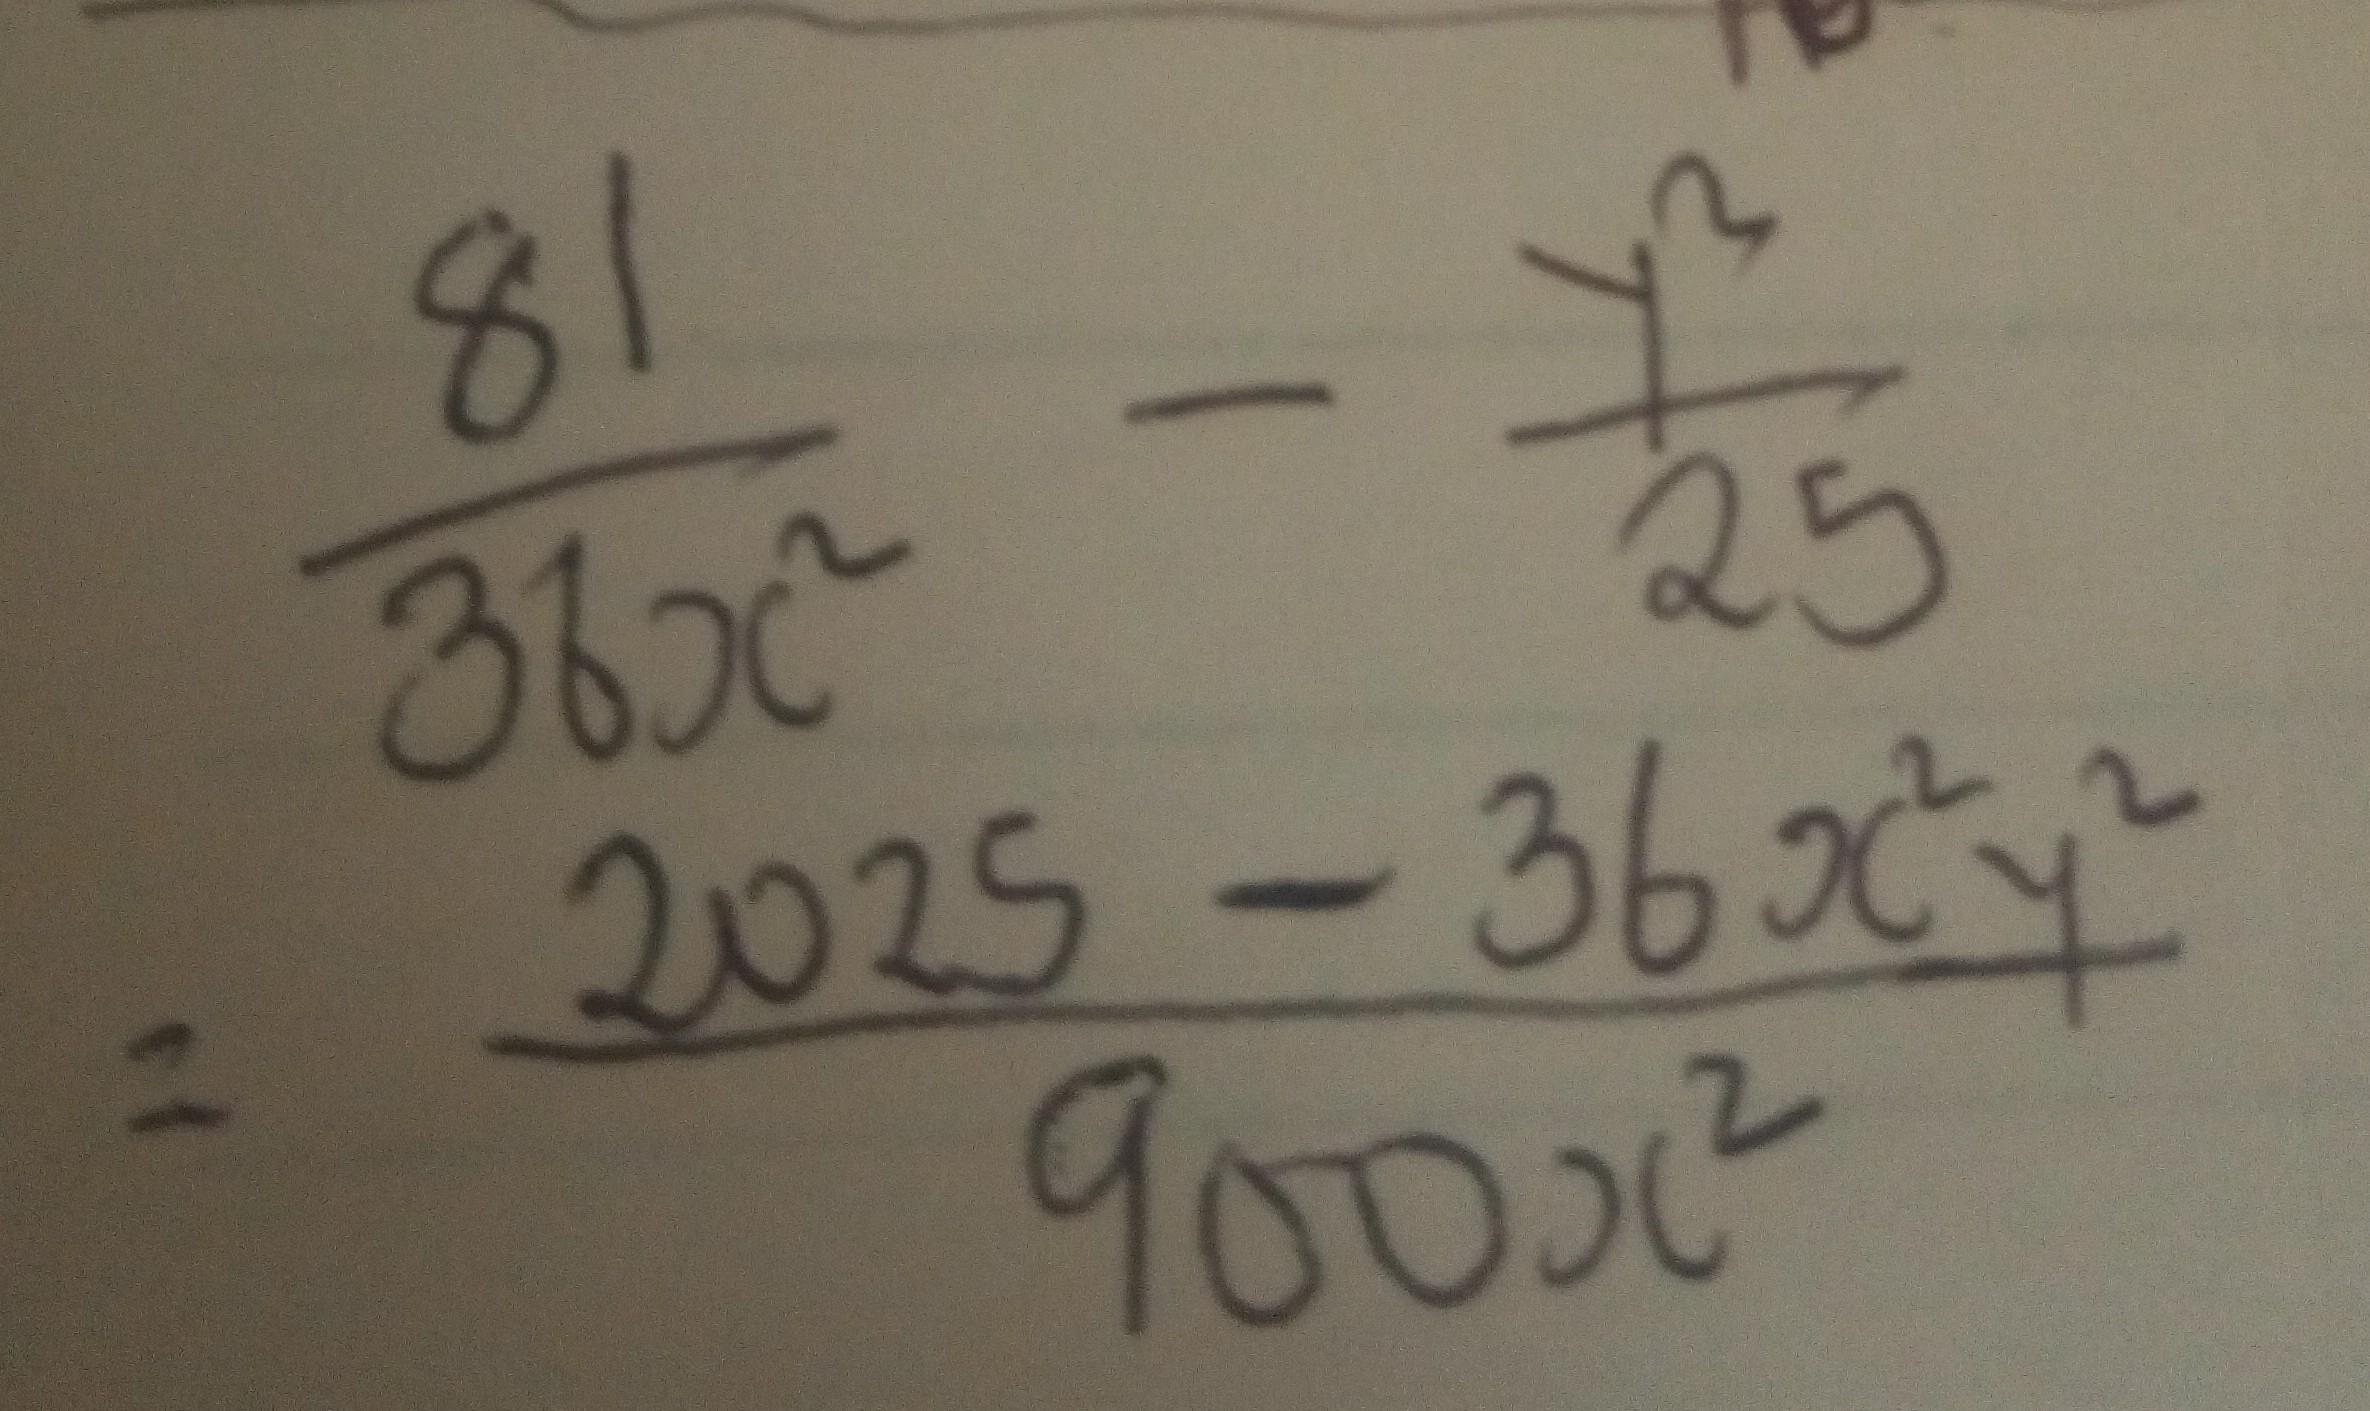 81/36x² - y²/25
= (2025 - 36x²y²)/900x²